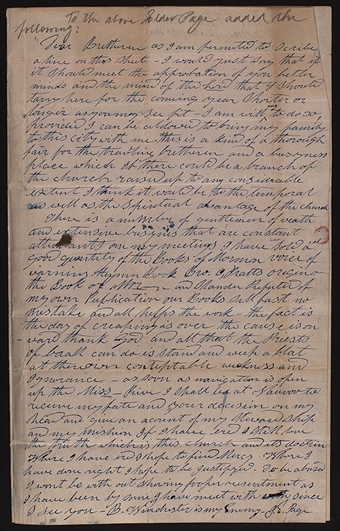 To the above Elder Page added the
following:
Dear Brethren as I am permited to Scribe
a line on this Sheet – I would just Say that if
it Should meet the approbation of your better
minds and the mind of the Lord that I Should
tarry here for the coming year Shorter or
longer as you may See fit – I am with to do so
provided I can be aldored to bring my family
to this city with me this is a kind of a thorough
fair for the traviling brethren and a buisyness
place which if there could be a branch of
the church raised up to any considerable
extent I think it would be for the temporal
as well as the Spiritual advantage of the church
There is a number of gentlemen of wealth
and extensive business that are constant
attendants on my meetings I have Sold a
good quantity of the Books of Mormon voice of
warning Hymn Book Bro. O Pratts origin of
the Book of and Slander Refuted of
my own Publication our Books Sell fast no
mistake and all helps the work – the fact is
the day of creaping is over the cause is on
ward thank God and all that the Priests
of baal can do is Stand and weep a blat
at there own contemptable weakness and
Ignorance – as soon as navigation is open
up the Miss – River I Shall be at Nauvoo to
recieve my fate and your decision on my
head and give an account of my Steward Ship
and my mission If where ever I Still love
the truth which is this church and its doctrin
Where I have ered I hope to find Mercy Where I
have done right I hope to be justifyed. To be abused
I wont be with out Shoving proper resentment as
I have been by some I have meet with Since
I See you – B. Winchester is my enemy J E Page